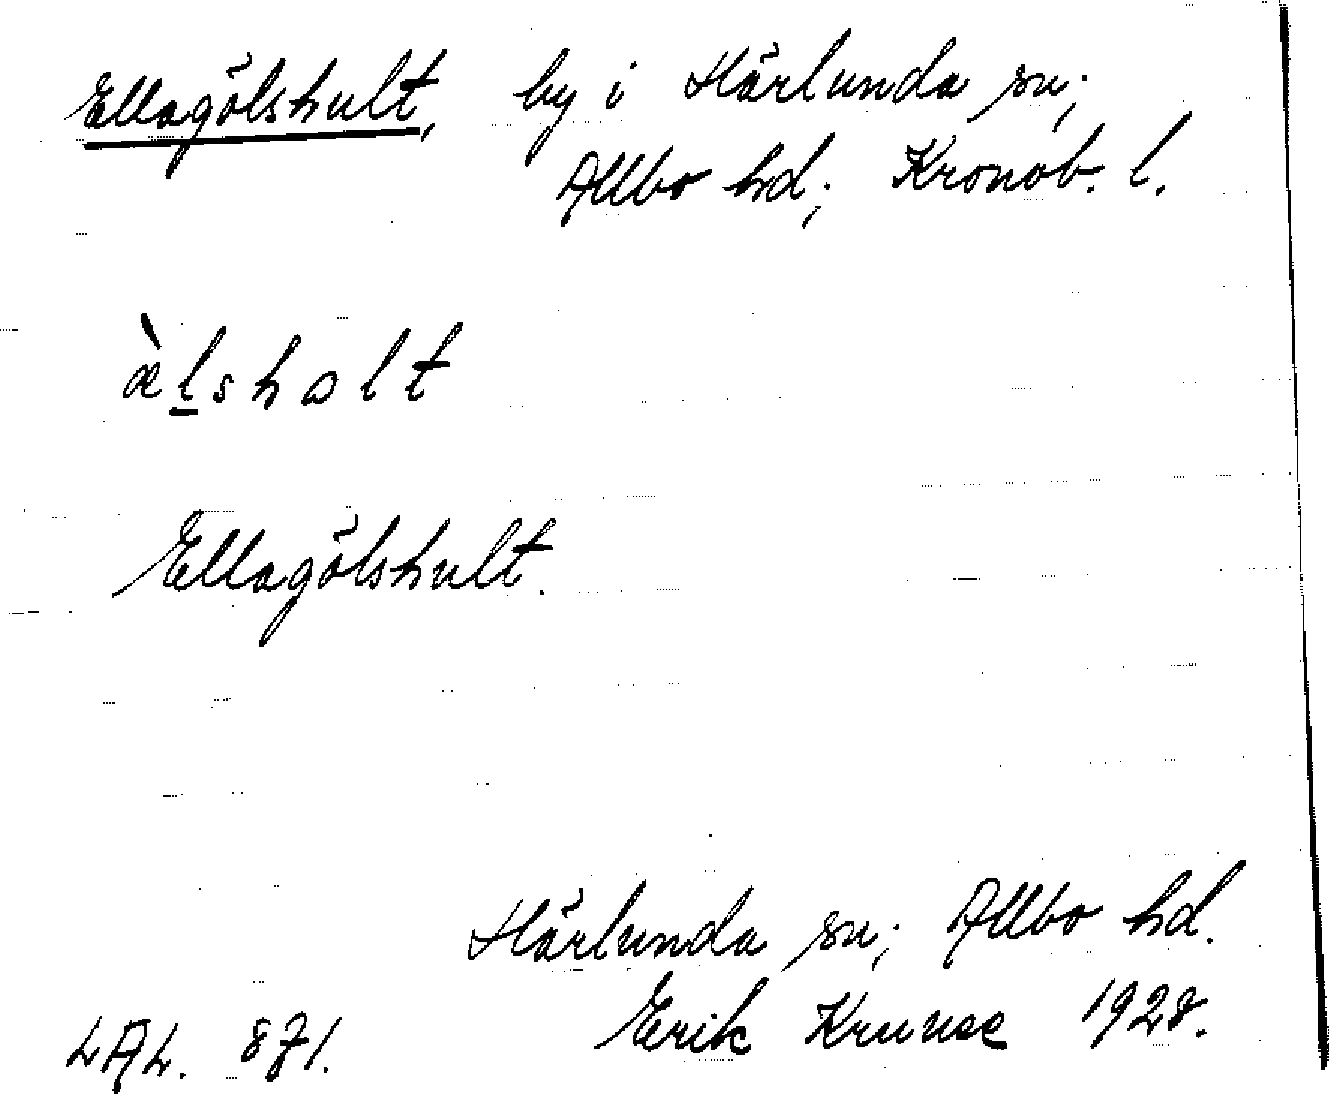 Ellagölshult, by i Härlunda sn;
Allbo hd; Kronob. l.
æ̀l̲shɔlt
Ellagölshult.
Härlunda sn; Allbo hd.
LAL. 871. Erik Kruuse 1928.